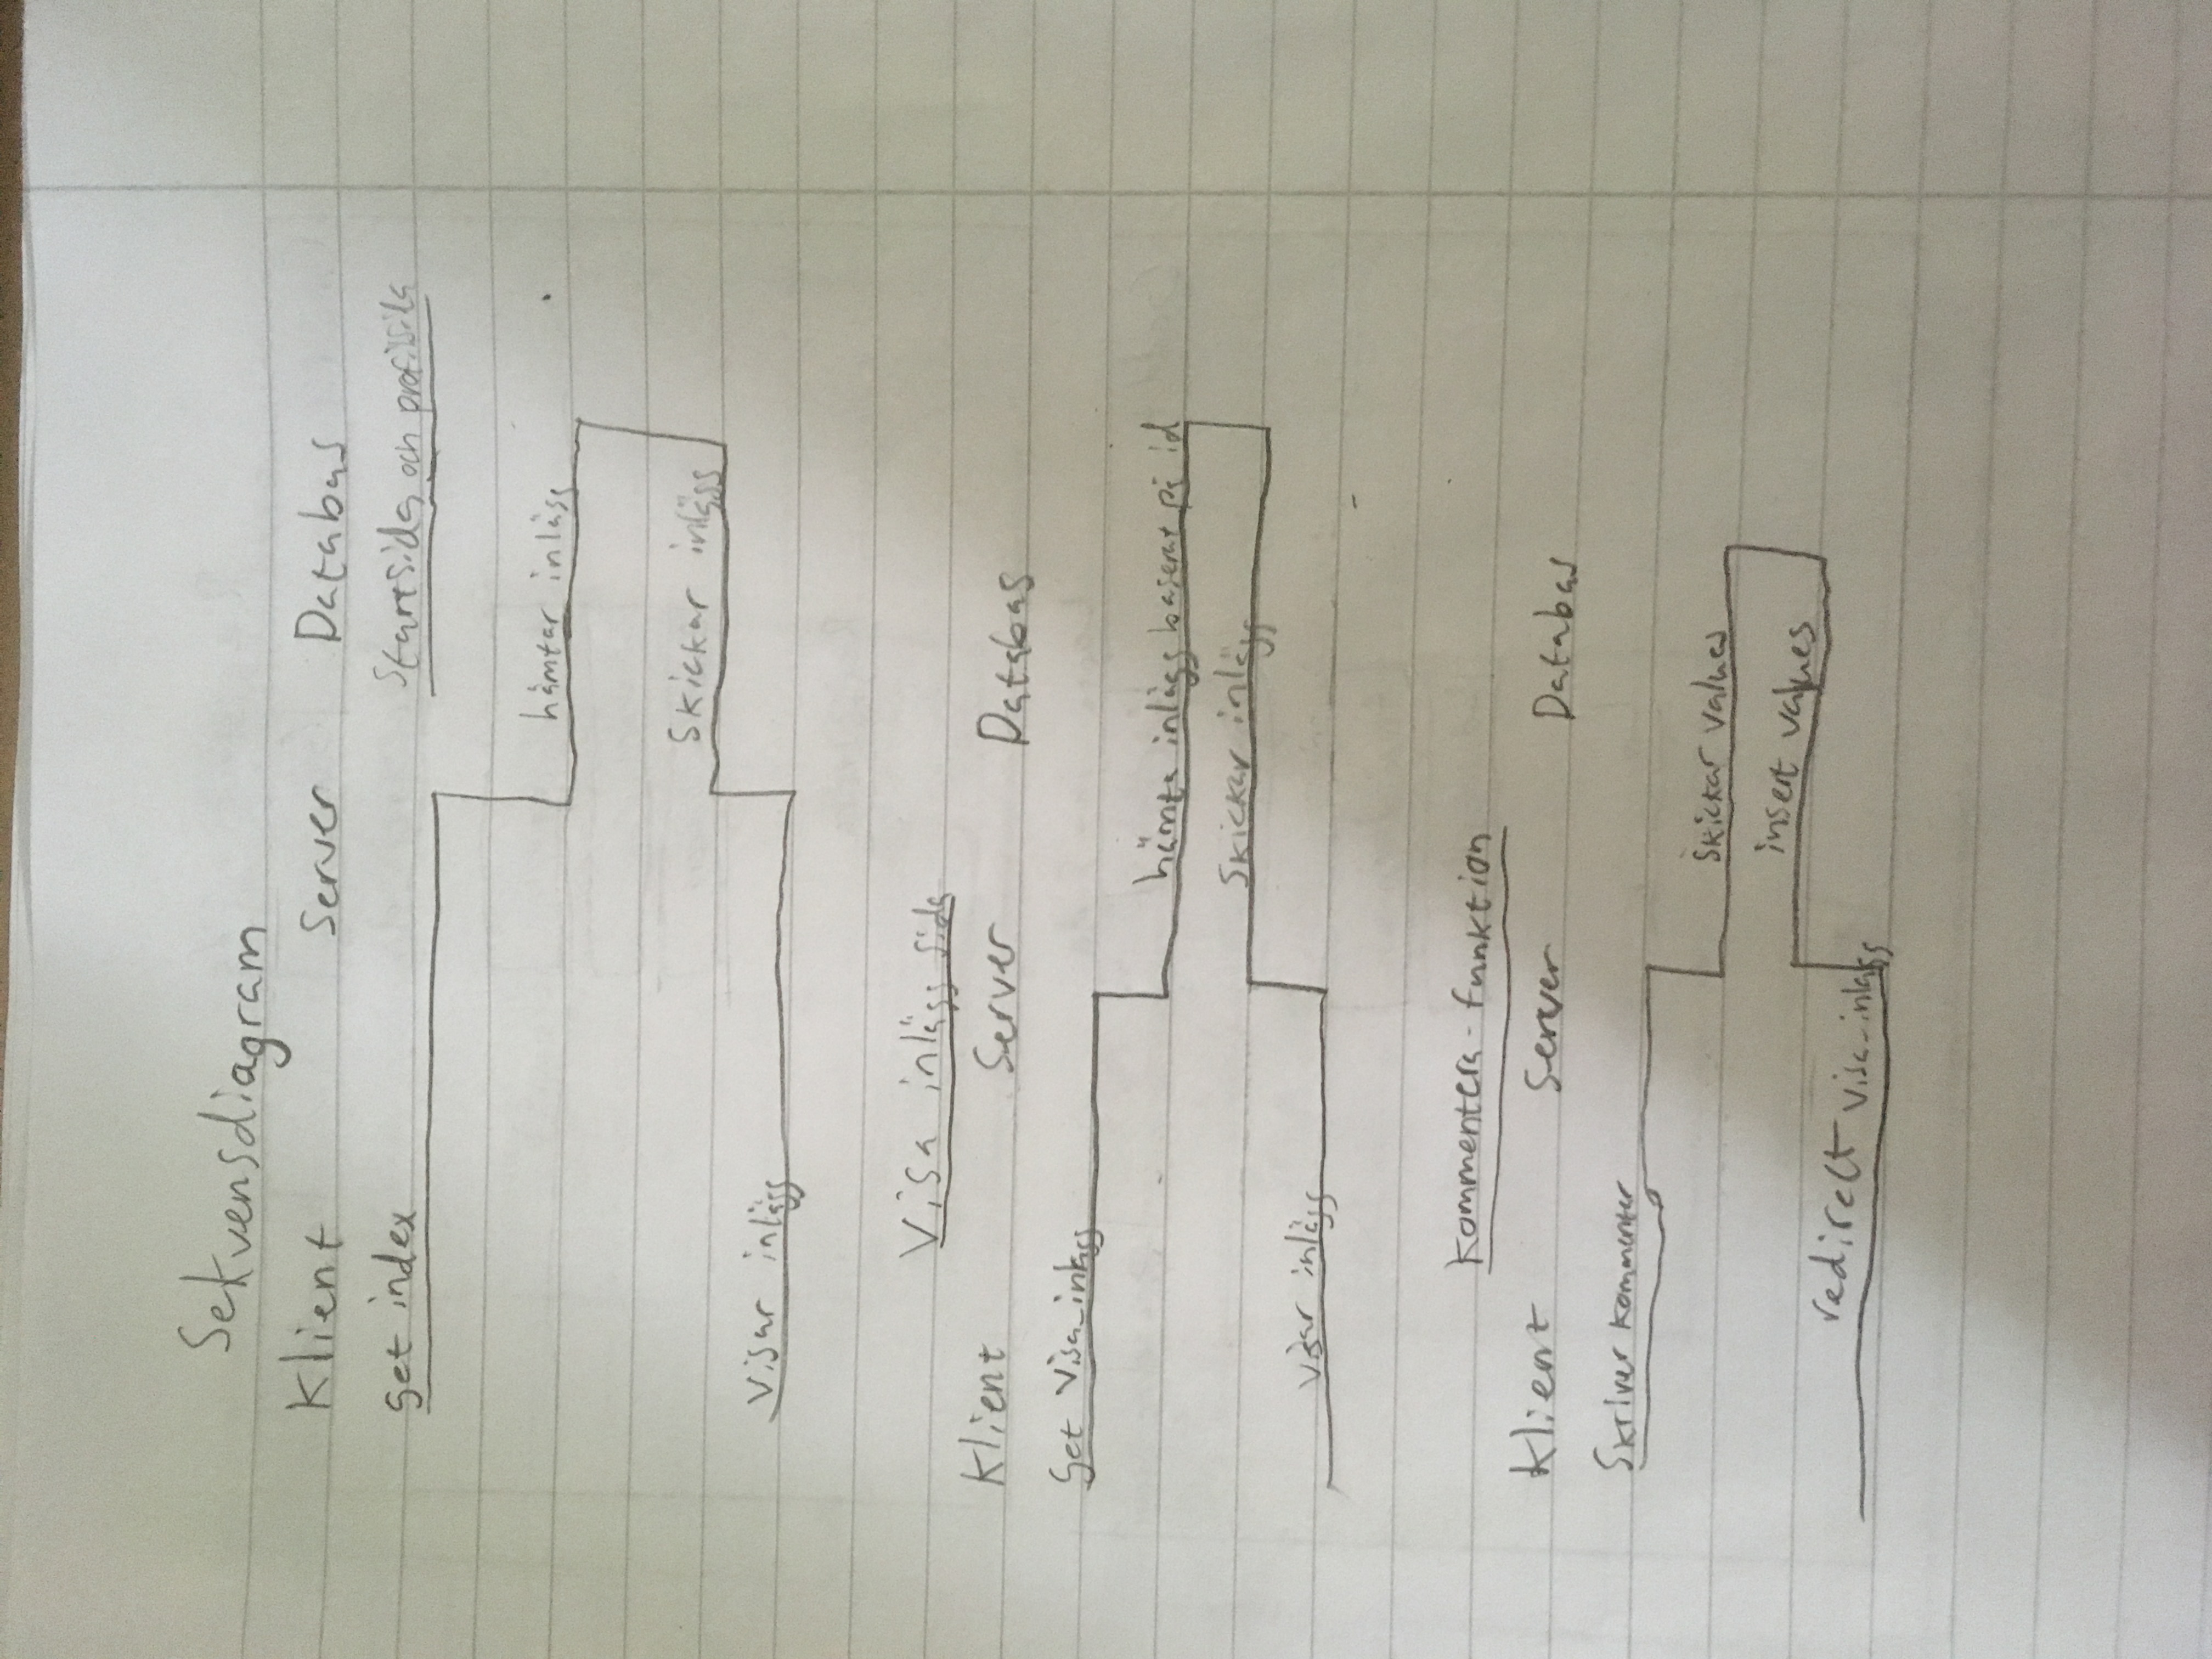 Sekvensdiagram
Klient Server Databas
get index Startsida och profilsida
hämtar inlägg
Skickar inlägg
Visar inlägg
Visa inlägg sida
Klient Server Databas
Get Visa_inlagg
hämta inlägg baserat på id
Skickar inlägg
visar inlägg
Kommentera-funktion
Klient Server Databas
Skriver kommentar
skickar values
insert values
redirect visa_inlagg